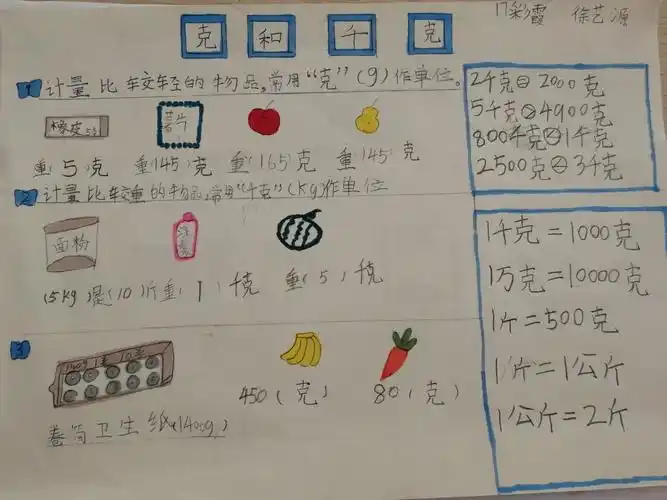 门彩霞 徐艺源
克和千克
1 计量比较轻的物品,常用“克”(g)作单位。
橡皮 5g
薯片
重(5)克 重(145)克 重(165)克 重(145)克
2 计量比较重的物品,常用“千克”(kg)作单位
面粉
(5kg)是(10)斤 重(1)千克 重(5)千克
3
卷筒卫生纸(1400g)
450(克) 80(克)
2千克=2000克
5千克>4900克
800千克>1千克
2500克<3千克
1千克=1000克
1万克=10000克
1斤=500克
1斤=1公斤
1公斤=2斤